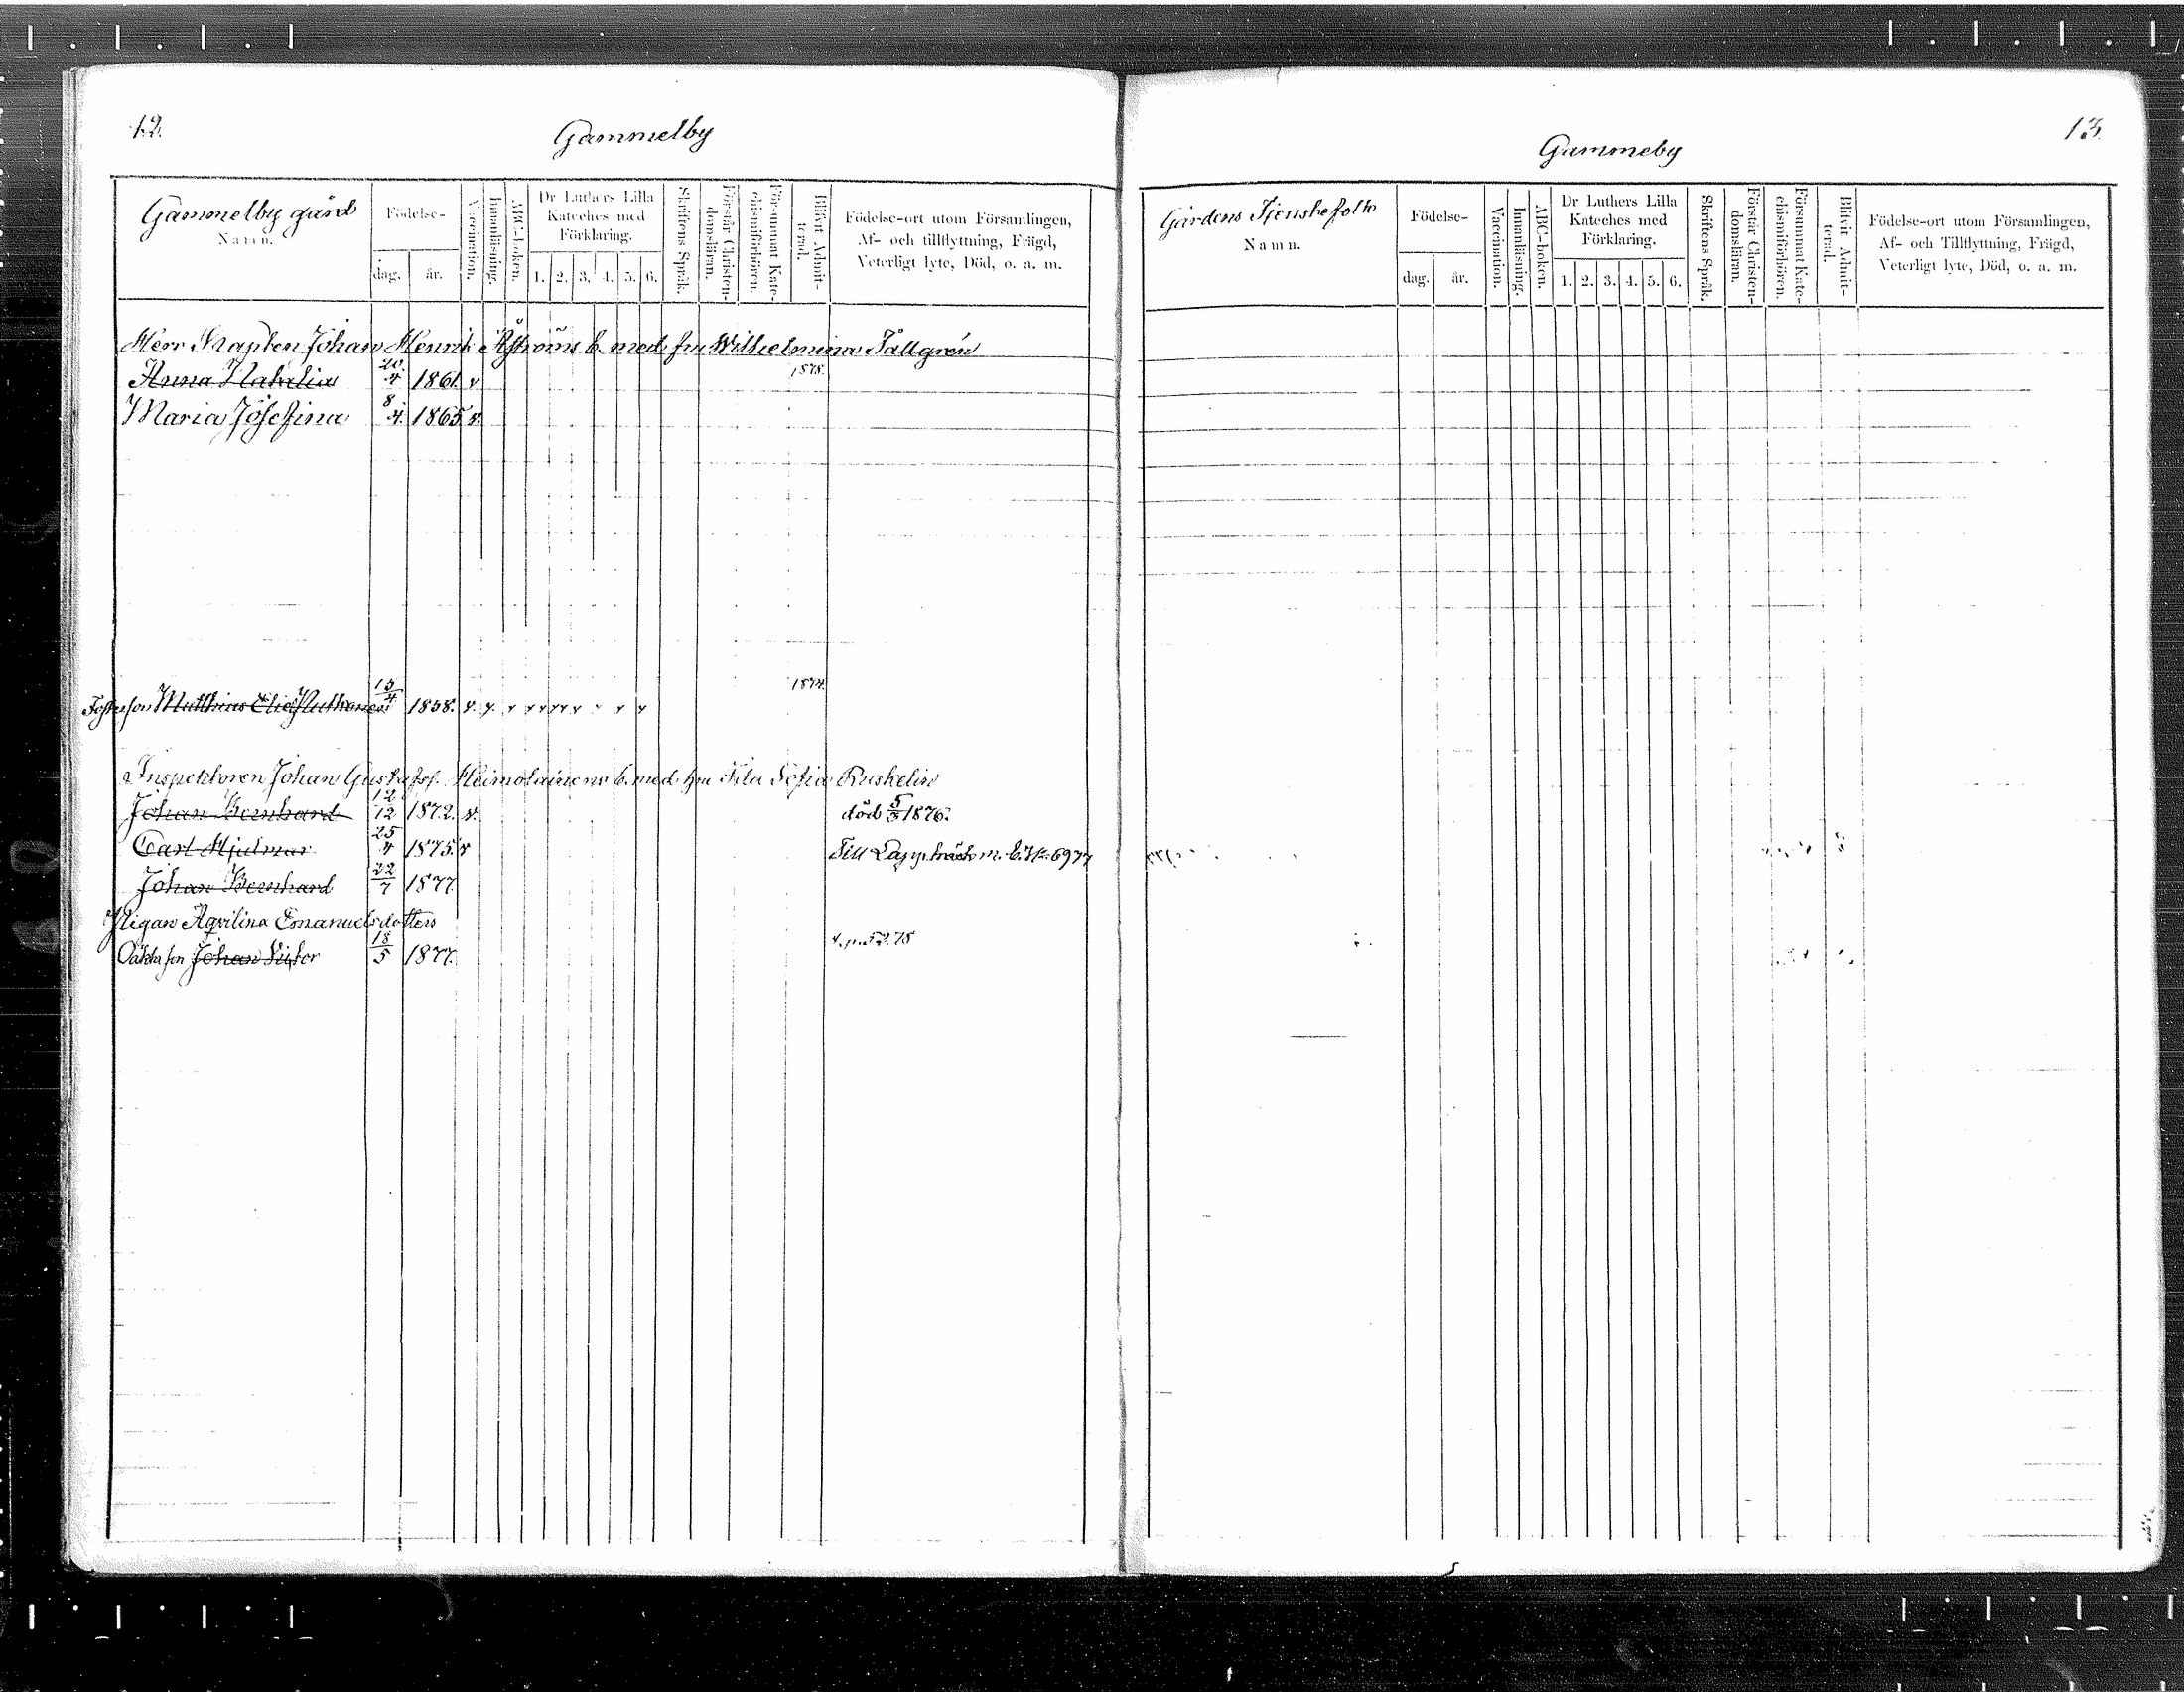 12.
Gammelby
Gammelby gård
Namn.
Födelse-
dag.
år.
Vaccination.
Innanläsning.
ABC-boken.
Dr Luthers Lilla
Kateches med
Förklaring.
1. 2. 3. 4. 5. 6.
Skriftens Språk.
Förstår Christen-
domsläran.
Försummat Kate-
chismiförhören.
Blifvit Admit-
terad.
Födelse-ort utom Församlingen,
Af- och tillflyttning, Frägd,
Veterligt lyte, Död, o. a. m.
Herr Kapten Johan Henrik Åströms b. med fru Wilhelmina Tållgrén
Anna Natalia 20/4 1861. v 1878.
Maria Josefina 8/4. 1865 v.
Fosterson Matthias Elias 15/4 1858. v. v. v v v v v v v 1874.
Inspektoren Johan Gustafsf. Heimolainens b. med hu Sofia Ruskelin
Johan Bernhard 12/12 1872. v. död 5/3 1876.
Carl Hjalmar 25/4 1875. v Till m. b. 6977
Johan Bernhard 22/7 1877.
Pigan Aqvilina Emanuelsdotters
Oäkta son Johan 18/5 1877. 78
13.
Gammeby
Gårdens Tjenstefolk
Namn.
Födelse-
dag.
år.
Vaccination.
Innanläsning.
ABC-boken.
Dr Luthers Lilla
Kateches med
Förklaring.
1. 2. 3. 4. 5. 6.
Skriftens Språk.
Förstår Christen-
domsläran.
Försummat Kate-
chismiförhören.
Blifvit Admit-
terad.
Födelse-ort utom Församlingen,
Af- och Tillflyttning, Frägd,
Veterligt lyte, Död, o. a. m.